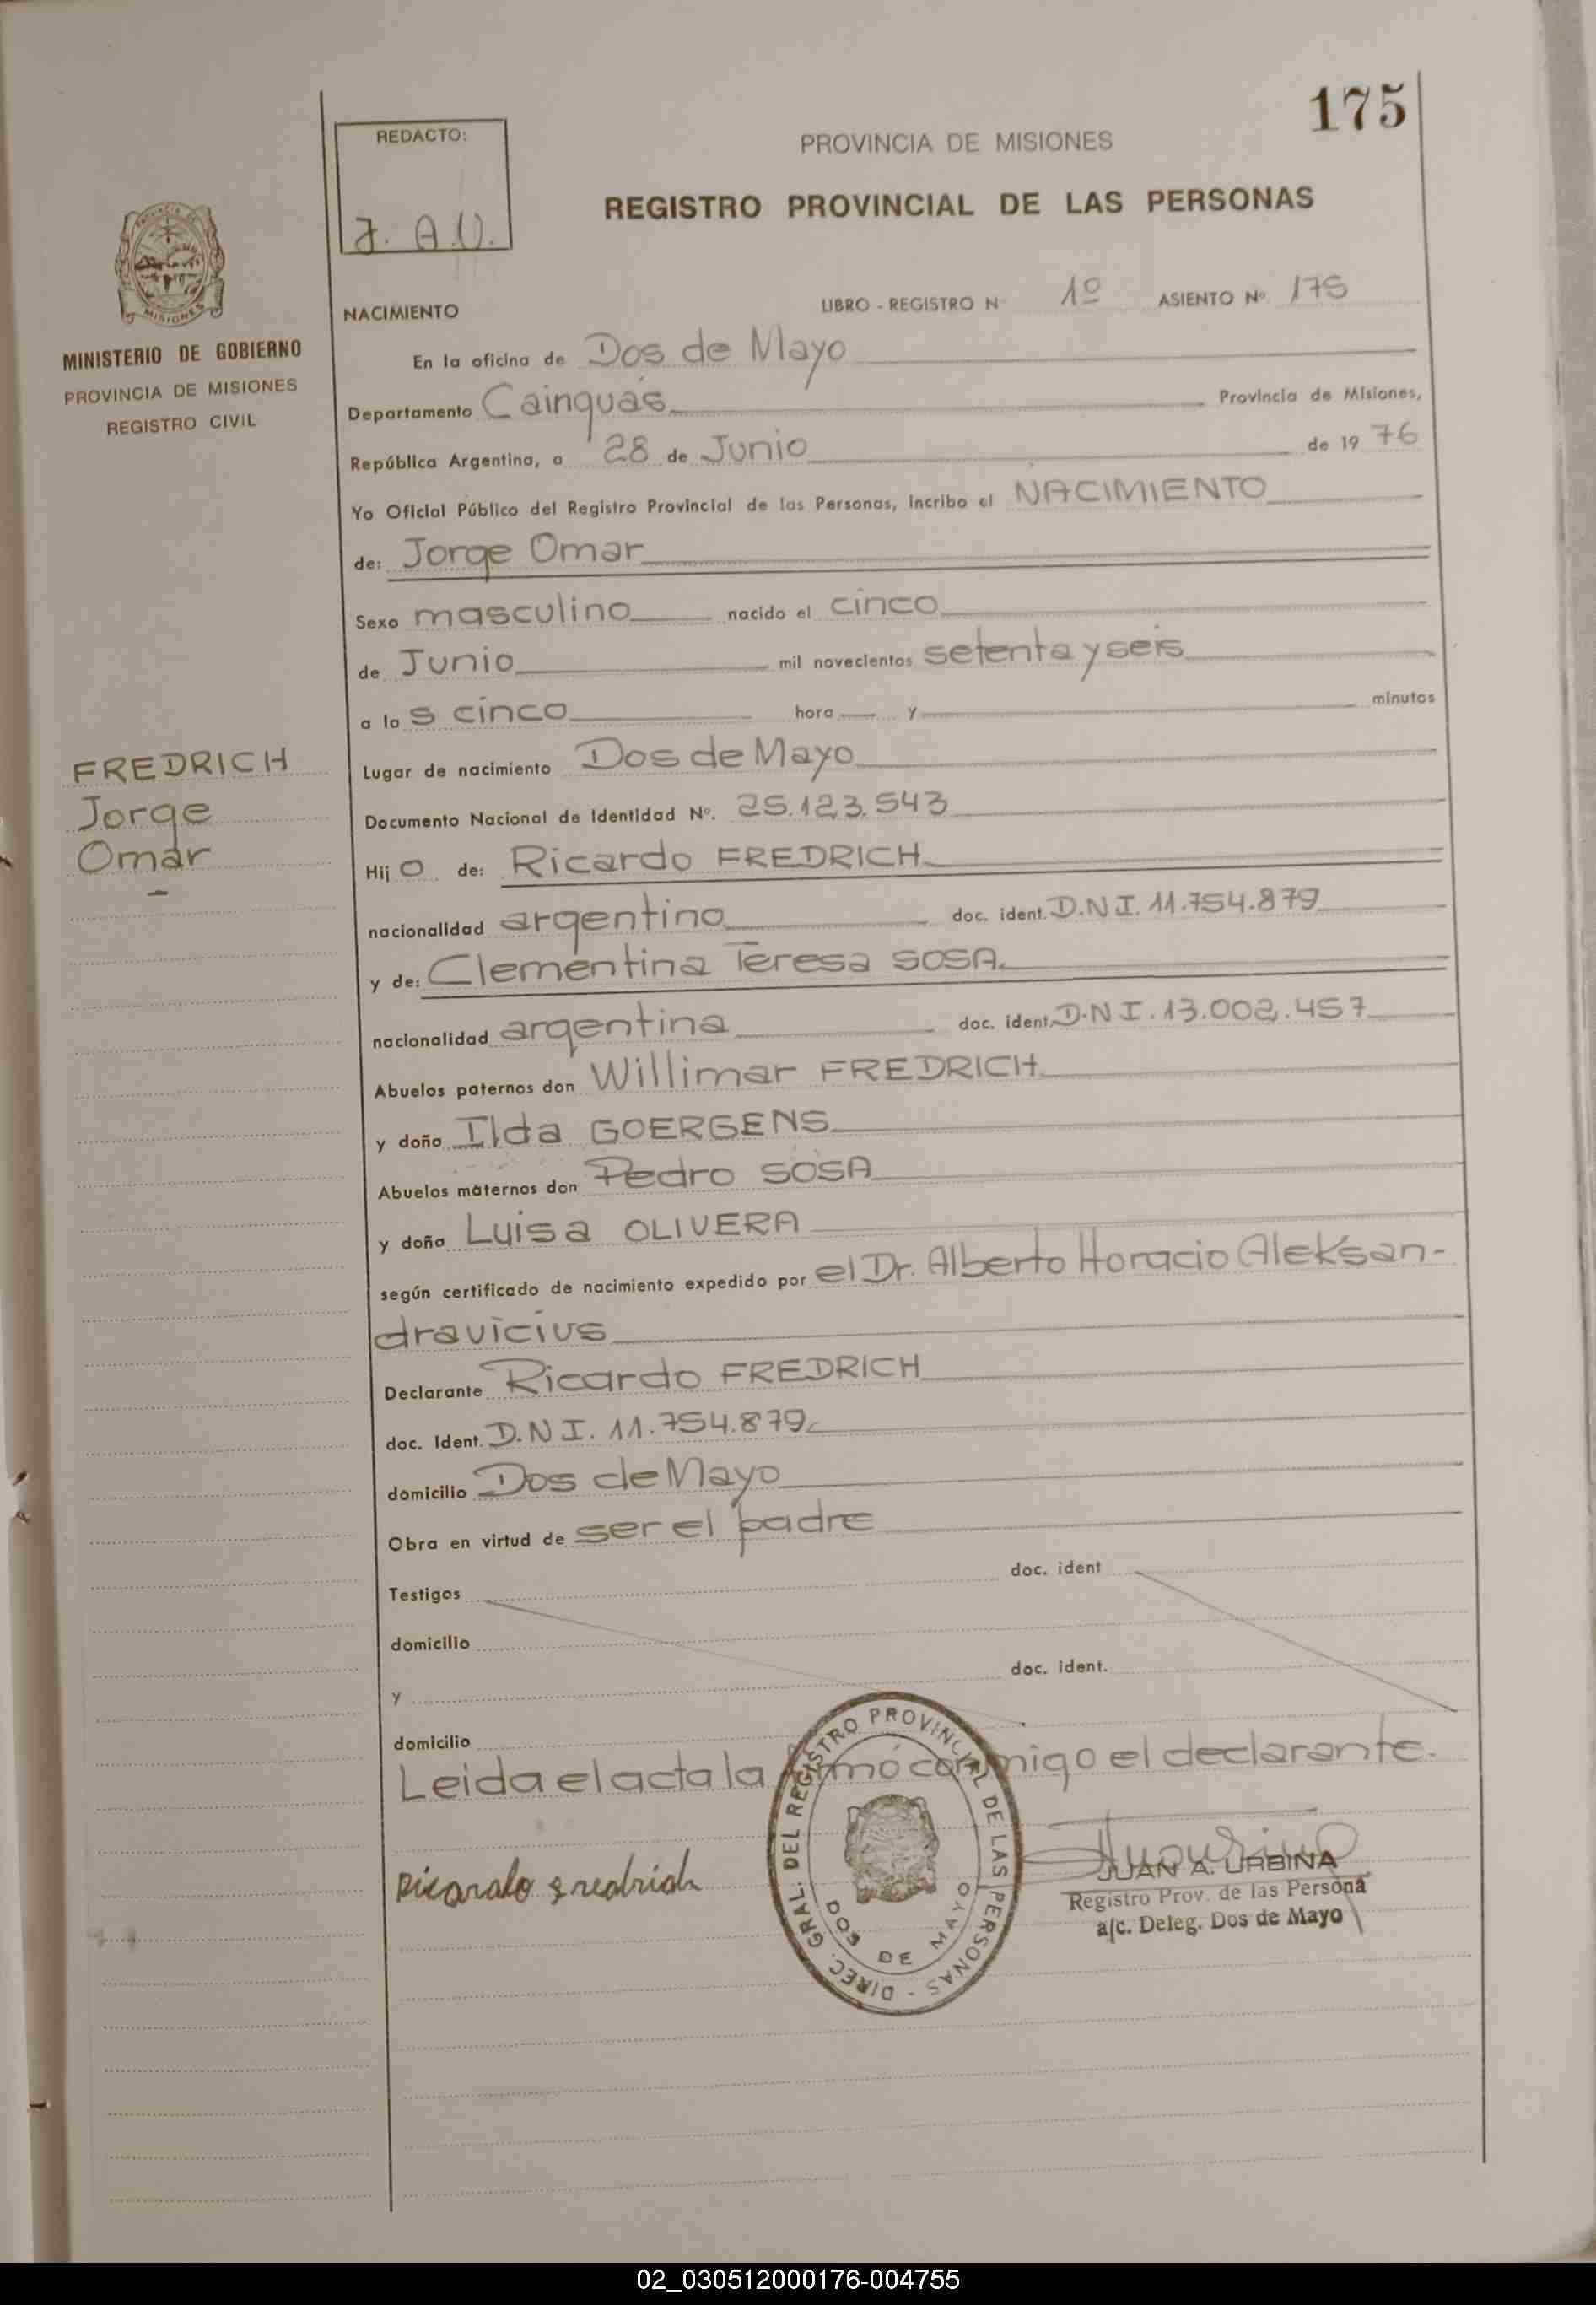 175
REDACTO:
J. A. U.
PROVINCIA DE MISIONES
REGISTRO PROVINCIAL DE LAS PERSONAS
MISIONES
MINISTERIO DE GOBIERNO
PROVINCIA DE MISIONES
REGISTRO CIVIL
NACIMIENTO LIBRO - REGISTRO N 1º ASIENTO Nº 175
En la oficina de Dos de Mayo
Departamento Cainguás Provincia de Misiones,
República Argentina, a 28 de Junio de 19 76
Yo Oficial Público del Registro Provincial de las Personas, incribo el NACIMIENTO
de: Jorge Omar
Sexo masculino nacido el cinco
de Junio mil novecientos setenta y seis
a las cinco hora y minutos
Lugar de nacimiento Dos de Mayo
FREDRICH
Jorge
Omar
Documento Nacional de Identidad Nº. 25.123.543
Hij o de: Ricardo FREDRICH
nacionalidad argentino doc. ident. D.N.I. 11.754.879
y de: Clementina Teresa SOSA
nacionalidad argentina doc. ident. D.N I. 13.002.457
Abuelos paternos don Willimar FREDRICH
y doña Ilda GOERGENS
Abuelos maternos don Pedro SOSA
y doña Luisa OLIVERA
según certificado de nacimiento expedido por el Dr. Alberto Horacio Aleksan-
dravicius
Declarante Ricardo FREDRICH
doc. Ident. D.N I. 11.754.879
domicilio Dos de Mayo
Obra en virtud de ser el padre
Testigos doc. ident
domicilio
y doc. ident.
domicilio
Leida el acta la firmó conmigo el declarante.
Ricardo Fredrich
DIREC. GRAL. DEL REGISTRO PROVINCIAL DE LAS PERSONAS -
DOS DE MAYO
JUAN A. URBINA
Registro Prov. de las Persona
a/c. Deleg. Dos de Mayo
02_030512000176-004755